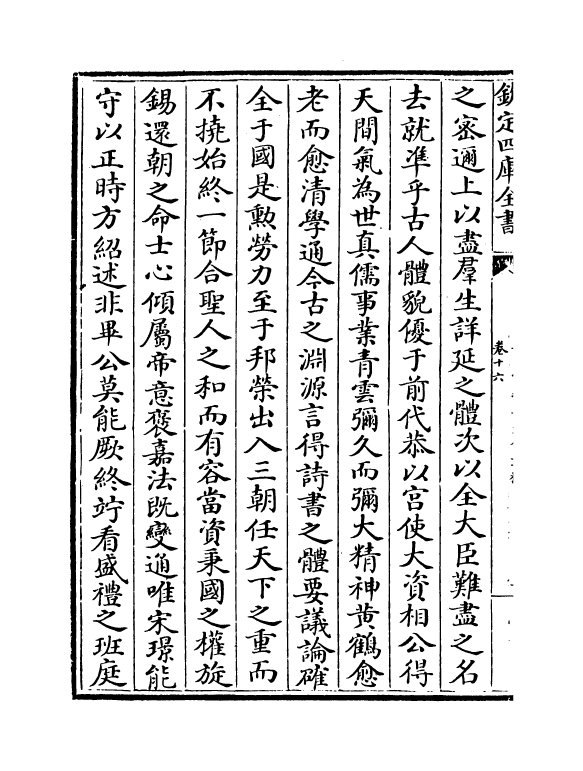 欽定四庫全書
卷十六
之密邇上以盡羣生詳延之體次以全大臣難盡之名
去就準乎古人體貌優于前代恭以宮使大資相公得
天間氣為世真儒事業青雲彌久而彌大精神黄鶴愈
老而愈清學通今古之淵源言得詩書之體要議論確
全于國是勲勞力至于邦榮出入三朝任天下之重而
不撓始終一節合聖人之和而有容當資秉國之權旋
錫還朝之命士心傾屬帝意褒嘉法既變通唯宋璟能
守以正時方紹述非畢公莫能厥終竚看盛禮之班庭